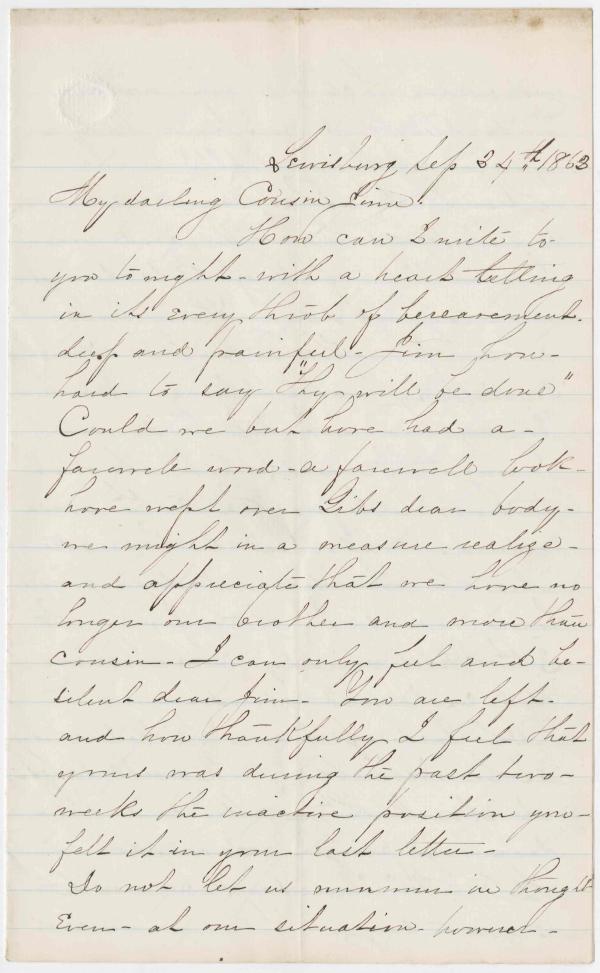 Lewisburg Sep 24th 1863
My darling Cousin Jim.
How can I write to
you to night - with a heart telling
in its every throb of bereavement.
deep and painful - Jim how -
hard to say "Thy will be done"
Could we but have had a -
farewell word - a farewell look -
have wept over Gibs dear body -
we might in a measure realize -
and appreciate that we have no
longer our brother and more than
cousin - I can only feel and be -
silent dear Jim - You are left -
and how thankfully I feel that
yours was during the past two -
weeks the inactive position you -
felt it in your last letter -
Do not let us murmur in thought
Even - at our situation - however -